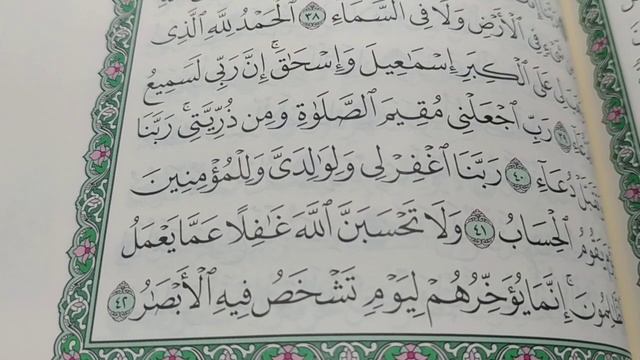 فِى ٱلۡأَرۡضِ وَلَا فِى ٱلسَّمَآءِ ٣٨ ٱلۡحَمۡدُ لِلَّهِ ٱلَّذِى
عَلَى ٱلۡكِبَرِ إِسۡمَٰعِيلَ وَإِسۡحَٰقَۚ إِنَّ رَبِّى لَسَمِيعُ
٣٩ رَبِّ ٱجۡعَلۡنِى مُقِيمَ ٱلصَّلَوٰةِ وَمِن ذُرِّيَّتِىۚ رَبَّنَا
دُعَآءِ ٤٠ رَبَّنَا ٱغۡفِرۡ لِى وَلِوَٰلِدَىَّ وَلِلۡمُؤۡمِنِينَ
يَقُومُ ٱلۡحِسَابُ ٤١ وَلَا تَحۡسَبَنَّ ٱللَّهَ غَٰفِلًا عَمَّا يَعۡمَلُ
إِنَّمَا يُؤَخِّرُهُمۡ لِيَوۡمٖ تَشۡخَصُ فِيهِ ٱلۡأَبۡصَٰرُ ٤٢